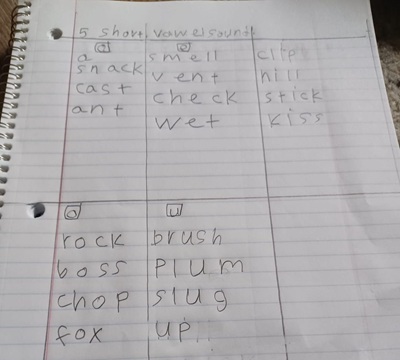 5 short vowel sound
a e
a smell clip
snack vent hill
cast check stick
ant wet kiss
o u
rock brush
boss plum
chop slug
fox up